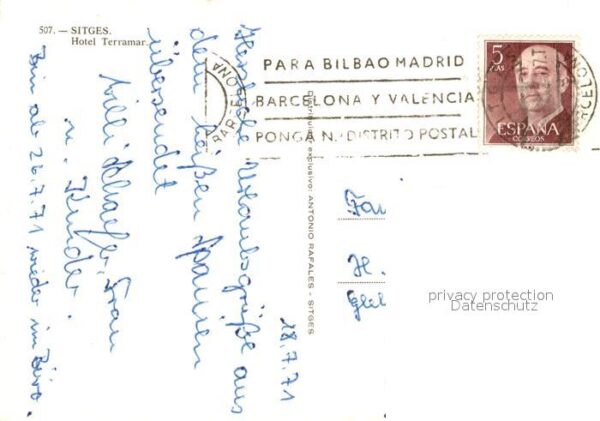 507. — SITGES.
Hotel Terramar.
18.7.71
Herzliche Urlaubsgrüße aus
dem heißen Spanien
übersendet
Willi Schaefer, Frau
u. Kinder.
Bin ab 26.7.71 wieder im Büro.
Distribuidor exclusivo: ANTONIO RAFALES - SITGES
BARCELONA
PARA BILBAO MADRID
BARCELONA Y VALENCIA
PONGA N. DISTRITO POSTAL
BARCELONA
5
PTAS
ESPAÑA
CORREOS
Fam
H.
privacy protection
Datenschutz